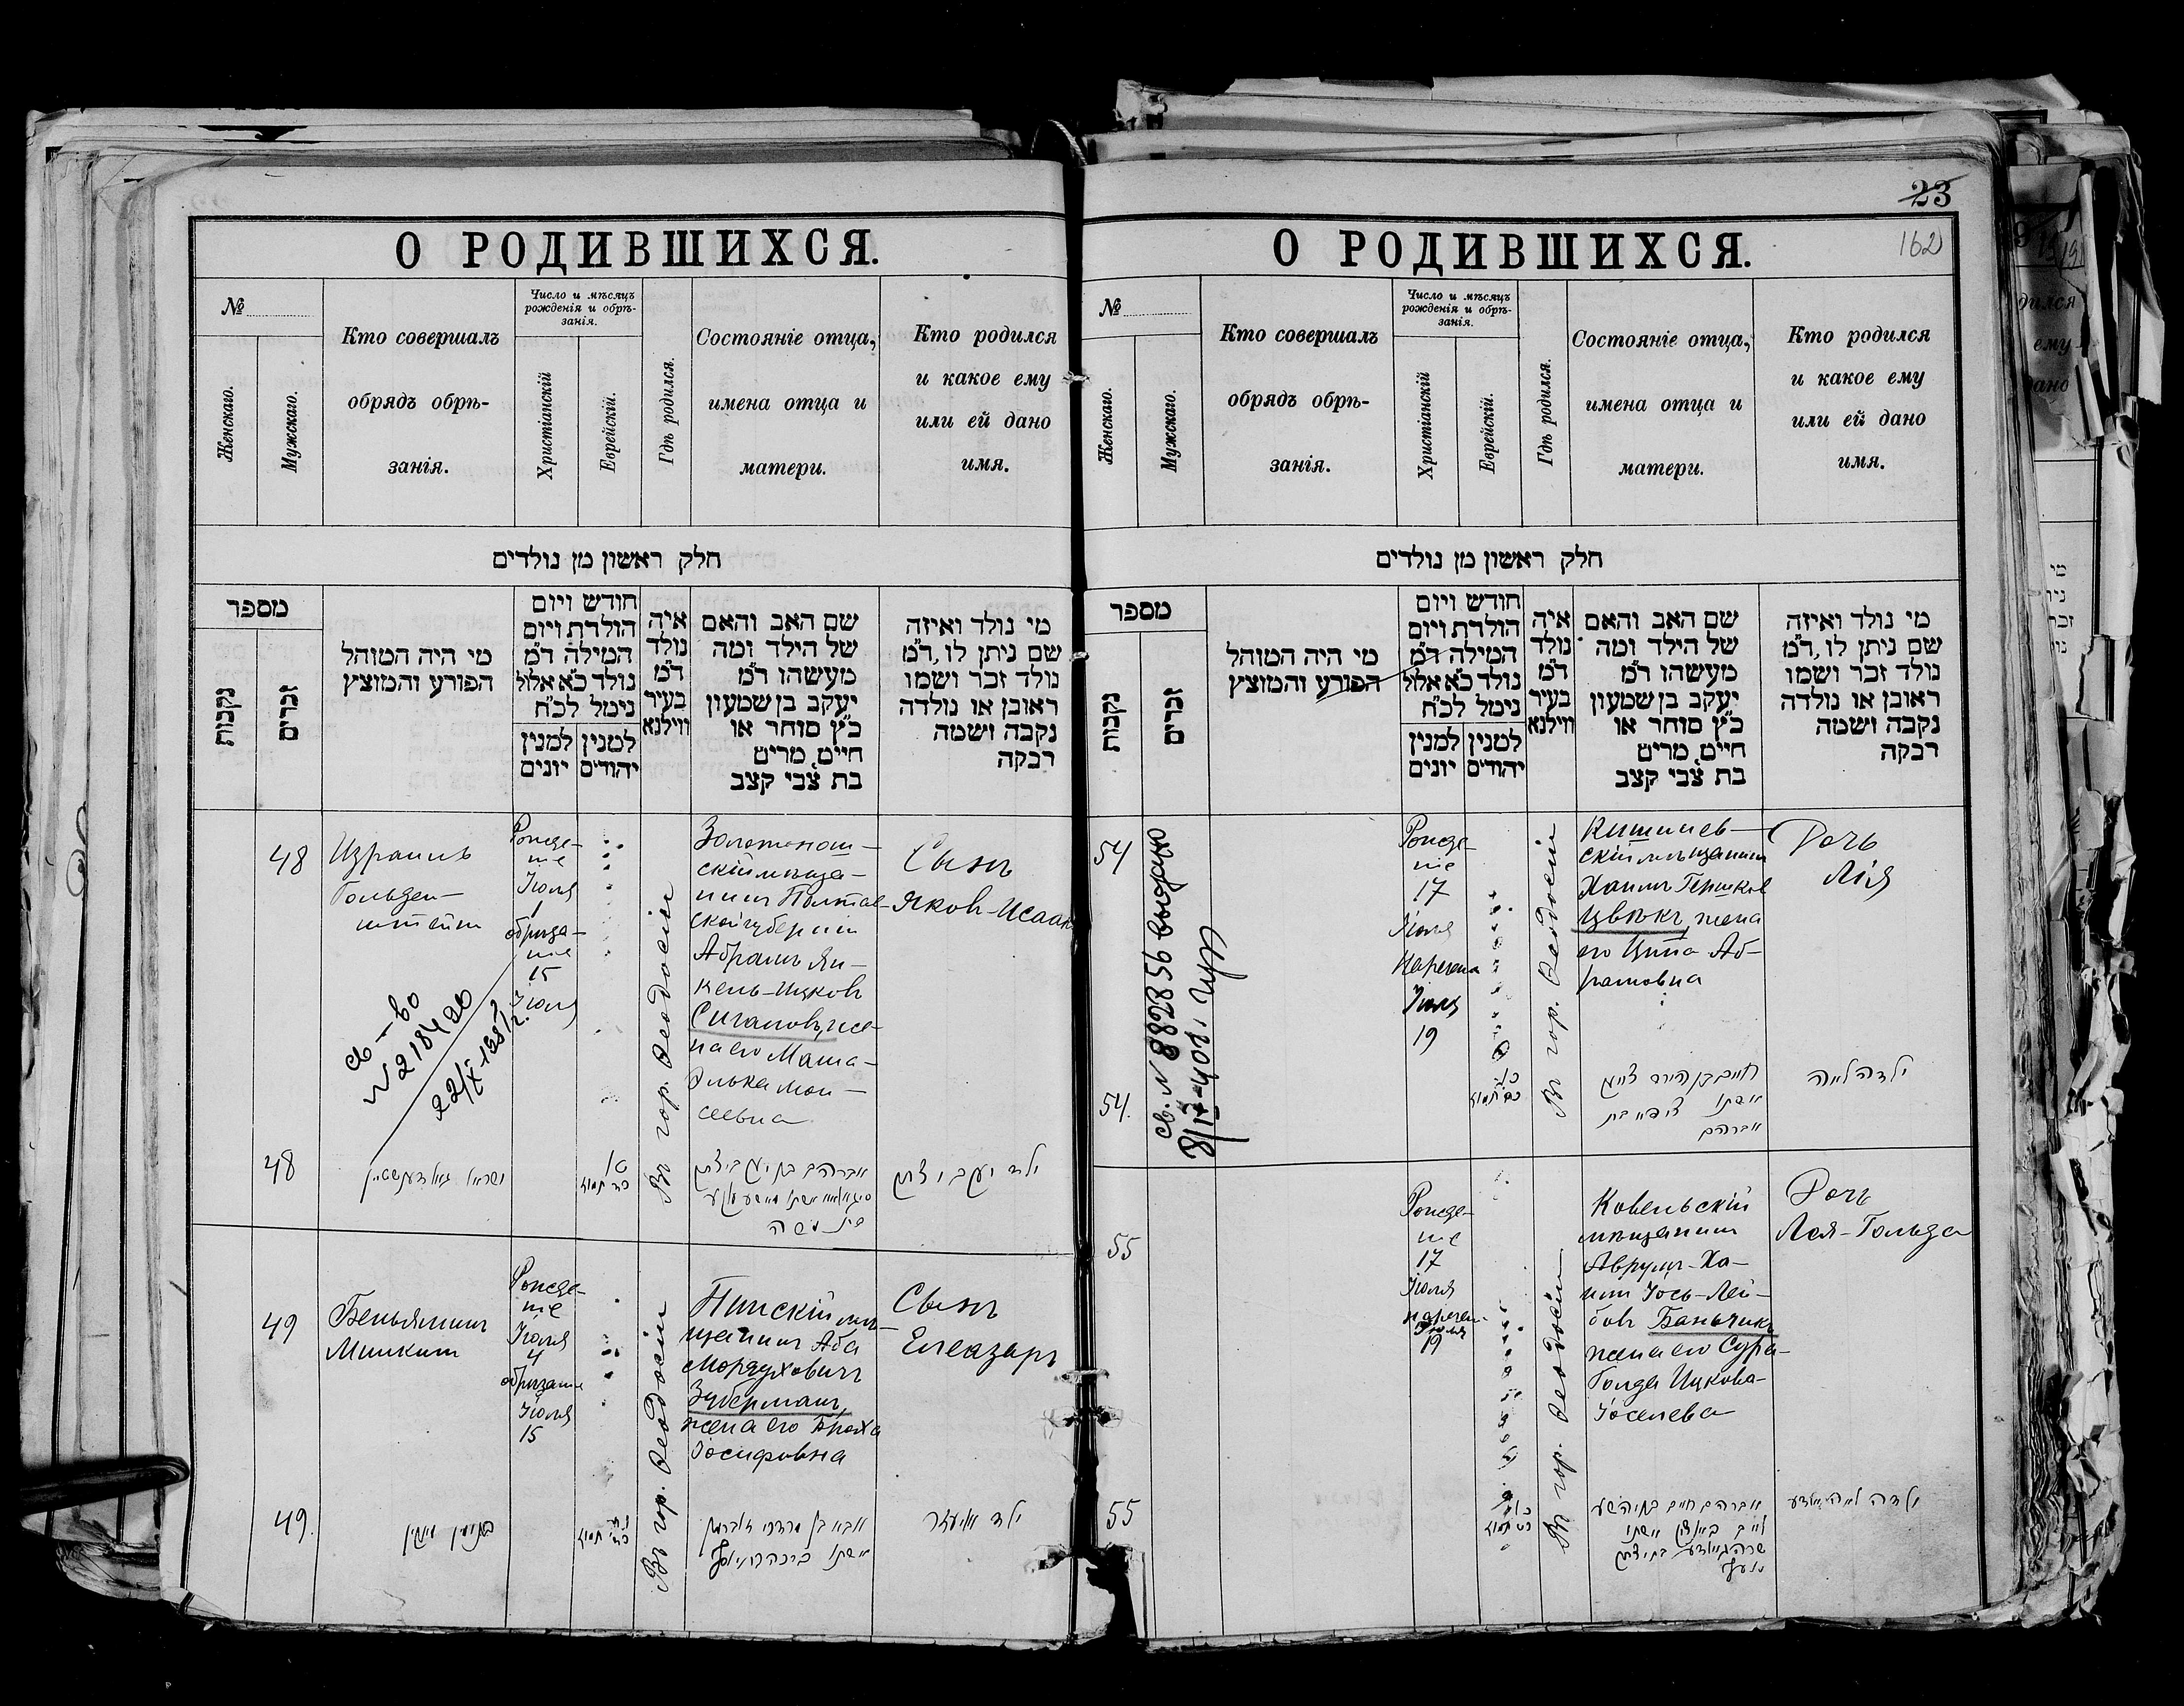 О РОДИВШИХСЯ.
№
Женскаго.
Мужскаго.
Кто совершалъ
обрядъ обрѣ-
занія.
Число и мѣсяцъ
рожденія и обрѣ-
занія.
Христіанскій
Еврейскій.
Гдѣ родился.
Состояніе отца,
имена отца и
матери.
Кто родился
и какое ему
или ей дано
имя.
חלק ראשון מן נולדים
מספר
נקבות
זכרים
מי היה המוהל
הפורע והמוצץ
חודש ויום
הולדת ויום
המילה ד״מ
נולד כ״א אלול
נימל לכ״ח
למנין למנין
יהודים יונים
איה
נולד
ד״מ
בעיר
ווילנא
שם האב והאם
של הילד ומה
מעשהו ד״מ
יעקב בן שמעון
כ״ץ סוחר או
חייט מרים
בת צבי קצב
מי נולד ואיזה
שם ניתן לו, ד״מ
נולד זכר ושמו
ראובן או נולדה
נקבה ושמה
רבקה
48
Израиль
Гольден-
штейн
Рожде-
ніе
Іюля
1
обрѣза-
ніе
15
Іюля
Въ гор. Ѳеодосіи
Золотонош-
скій мѣща-
нинъ Полтав-
ской губерніи
Абрамъ Ян-
кель-Ицковъ
Сигаловъ, же-
на его Маша-
Элька Мои-
сеевна
Сынъ
Яковъ-Исаакъ
св-во
№ 218420
48
ישראל גאלדענשטיין
ילד יעקב יצחק
49
Беньяминъ
Минкинъ
Рожде-
ніе
Іюля
4
обрѣзаніе
Іюля
15
Въ гор. Ѳеодосіи
Пинскій мѣ-
щанинъ Аба
Мордуховичъ
Зуберманъ,
жена его Броха
Іосифовна
Сынъ
Елеазаръ
49.
23
162
О РОДИВШИХСЯ.
№
Женскаго.
Мужскаго.
Кто совершалъ
обрядъ обрѣ-
занія.
Число и мѣсяцъ
рожденія и обрѣ-
занія.
Христіанскій
Еврейскій.
Гдѣ родился.
Состояніе отца,
имена отца и
матери.
Кто родился
и какое ему
или ей дано
имя.
חלק ראשון מן נולדים
מספר
נקבות
זכרים
מי היה המוהל
הפורע והמוצץ
חודש ויום
הולדת ויום
המילה ד״מ
נולד כ״א אלול
נימל לכ״ח
למנין למנין
יהודים יונים
איה
נולד
ד״מ
בעיר
ווילנא
שם האב והאם
של הילד ומה
מעשהו ד״מ
יעקב בן שמעון
כ״ץ סוחר או
חייט מרים
בת צבי קצב
מי נולד ואיזה
שם ניתן לו, ד״מ
נולד זכר ושמו
ראובן או נולדה
נקבה ושמה
רבקה
54
св. № 882856 выдано
Рожде-
ніе
17
Іюля
Наречена
Іюля
19
Въ гор. Ѳеодосіи
Кишинев-
скій мѣщанинъ
Хаимъ Гершковъ
Цвѣкъ, жена
его Ципа Аб-
рамовна
Дочь
Лія
54.
ילדה לאה
55
Рожде-
ніе
17
Іюля
наречен-
Іюля
19
Въ гор. Ѳеодосіи
Ковельскій
мѣщанинъ
Аврумъ-Ха-
имъ Іось-Лей-
бовъ Баньчикъ
жена его Сура-
Голда Ицкова-
Іоселева
Дочь
Лея-Гольда
55